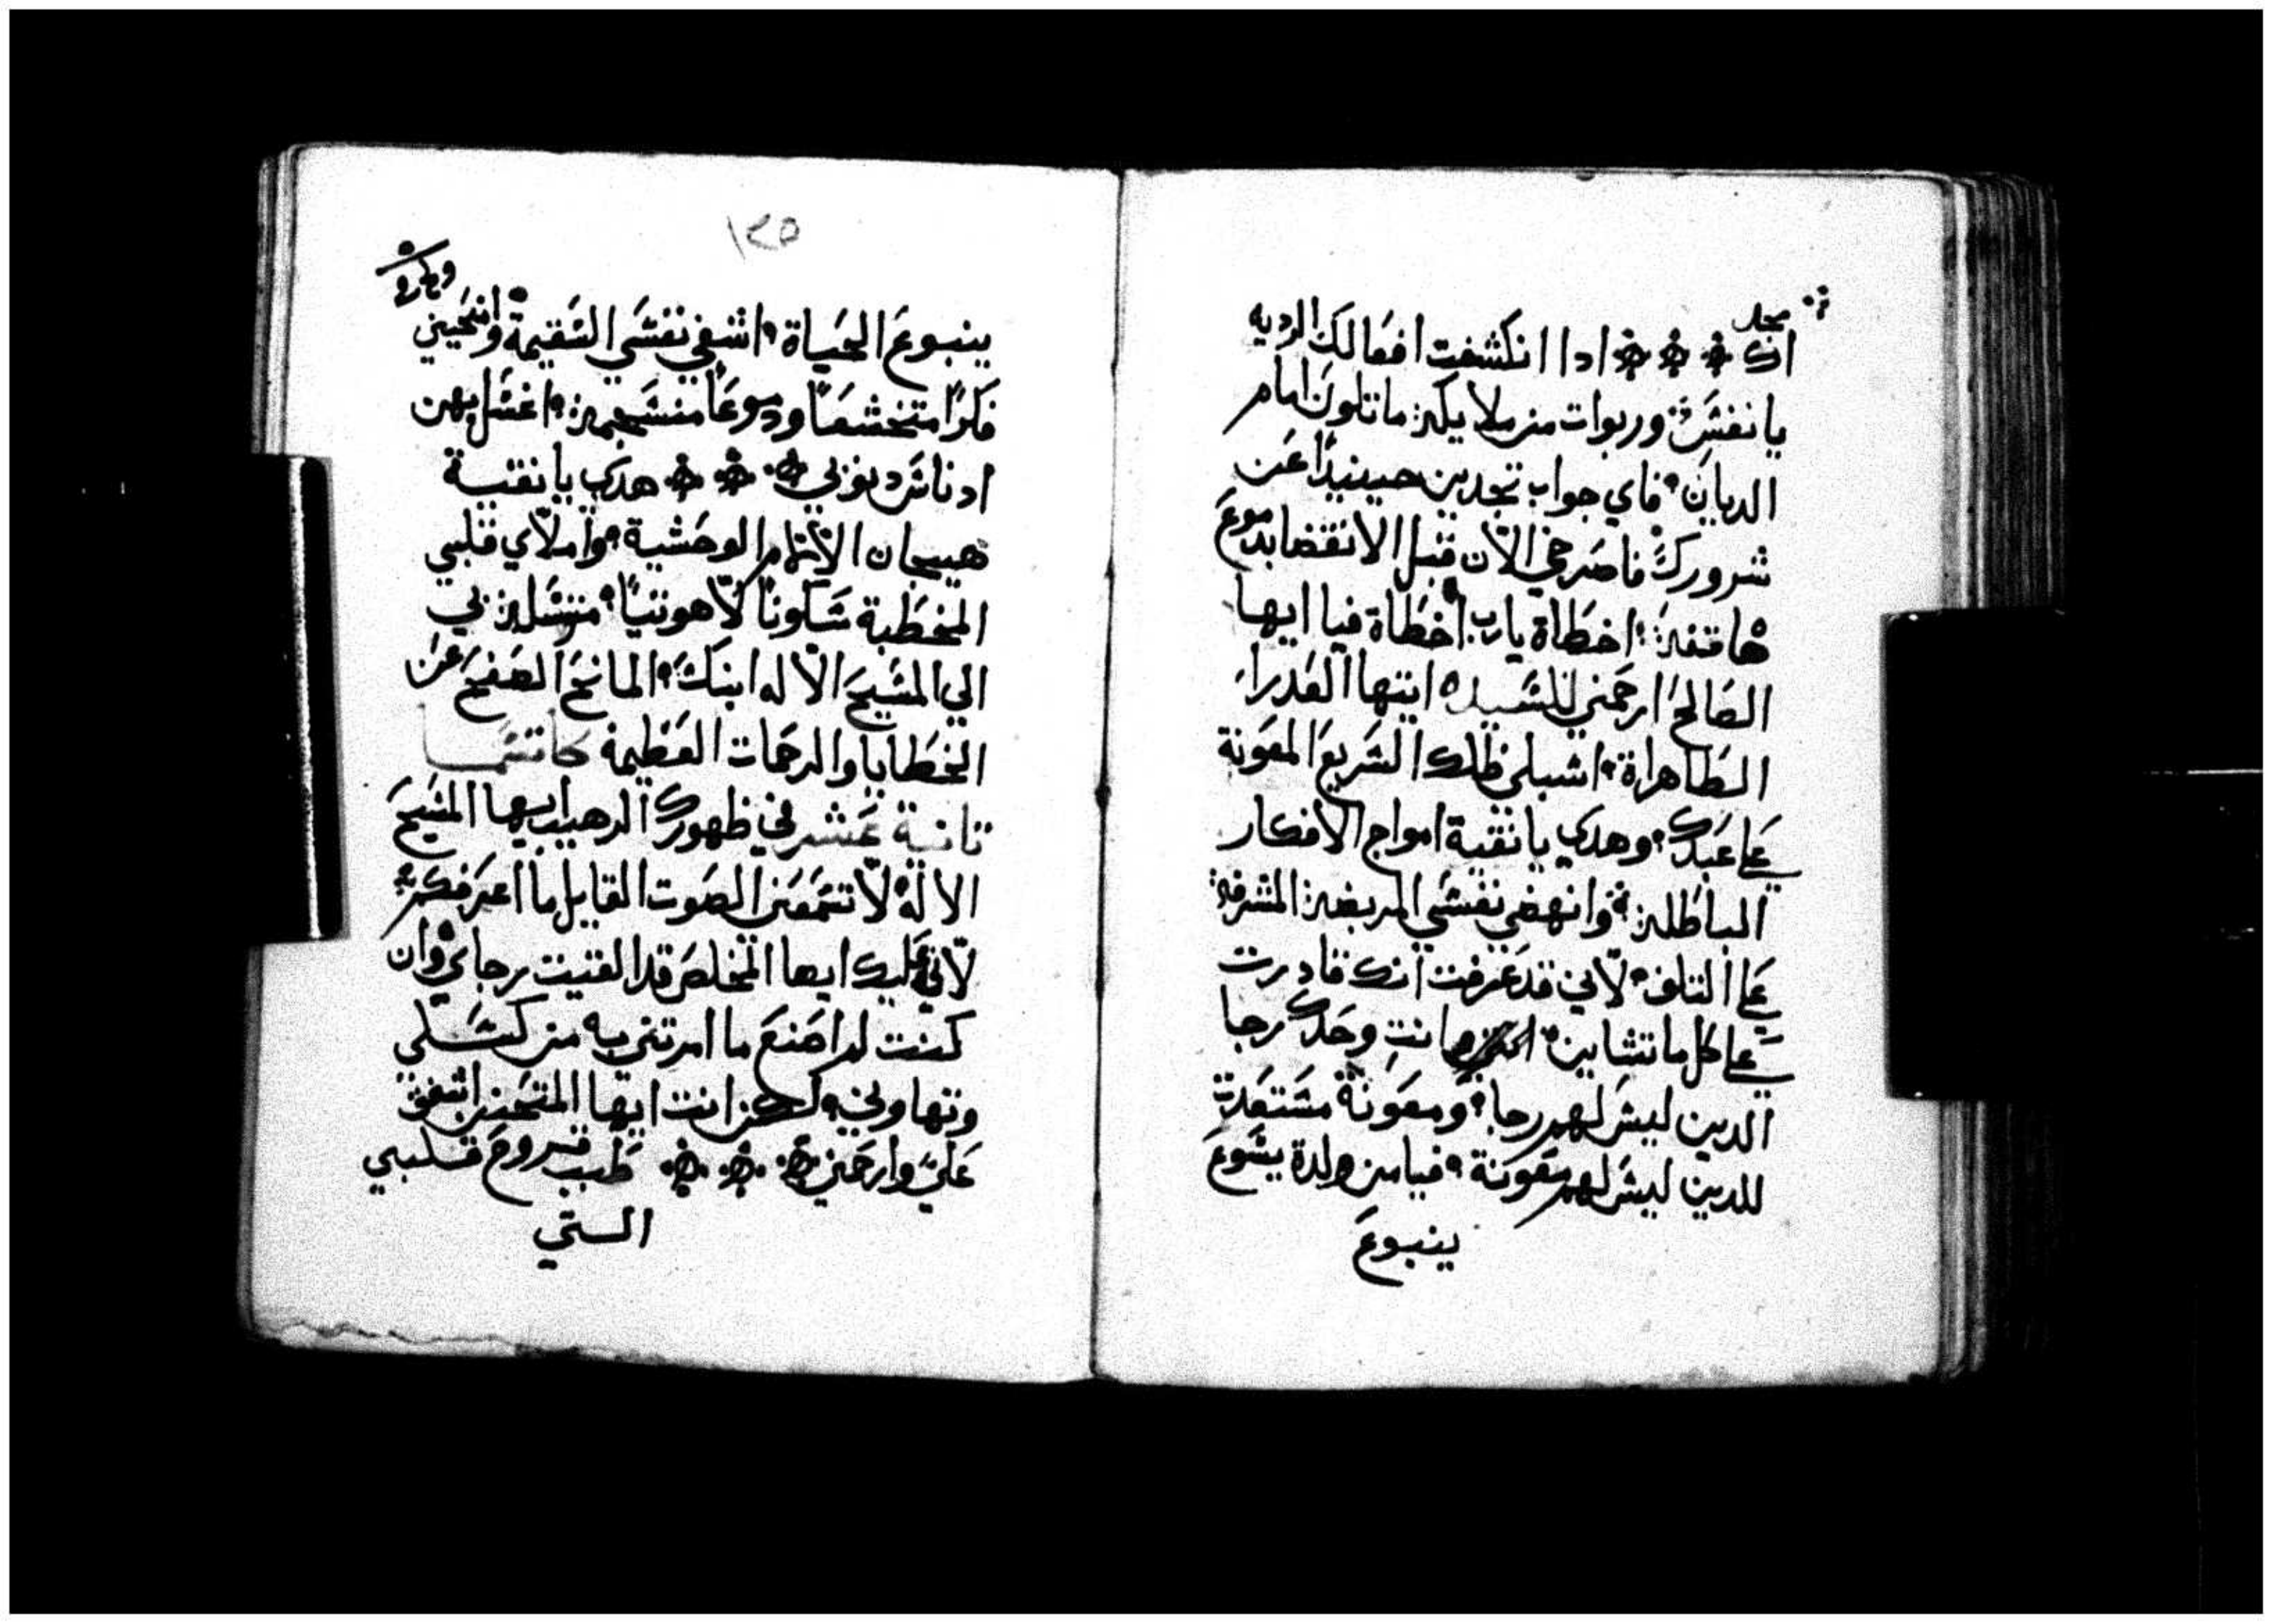 مجد
انك ادا انكشفت افعالك الرديه
يا نفس وربوات من ملايكه ماتلون امام
الديان فاي جواب تجدين حينيدا عن
شرورك فاصرخي الان قبل الانقضا بدموع
هاتفه اخطاة يارب اخطاة فيا ايها
الصالح ارحمني للسيده ايتها العدرا
الطاهراة اسبلي ظلك السريع المعونة
على عبدك وهدي يا نقية امواج الافكار
الباطله وانهضي نفسي المريضه المشرفه
على التلف لاني قد عرفت انك قادرت
على كل ما تشاين انت وحدك رجا
الدين ليس لهم رجا ومعونة مستعدت
للدين ليس لهم معونة فيا من ولدة يسوع
ينبوع
١٢٥
ينبوع الحياة اشفي نفسي السقيمة وامنحيني
فكرا متخشعا ودموعا منسجمه اغسل بهن
ادناس دنوبي هدي يا نقية
هيجان الالام الوحشية واملاي قلبي
المخطية سكونا لاهوتيا متوسله بي
الي المسيح الاله ابنك المانح الصفح عن
الخطايا والرحمات العظيمة كاتسما
تانية عشر في ظهورك الرهيب ايها المسيح
الاله لا تسمعني الصوت القايل ما اعرفك
لاني عليك ايها المخلص قد القيت رجاي وان
كنت لم اصنع ما امرتني به من كسلي
وتهاوني لكن انت ايها المتحنن اشفق
علي وارحمني طبب قروح قلبي
الستي